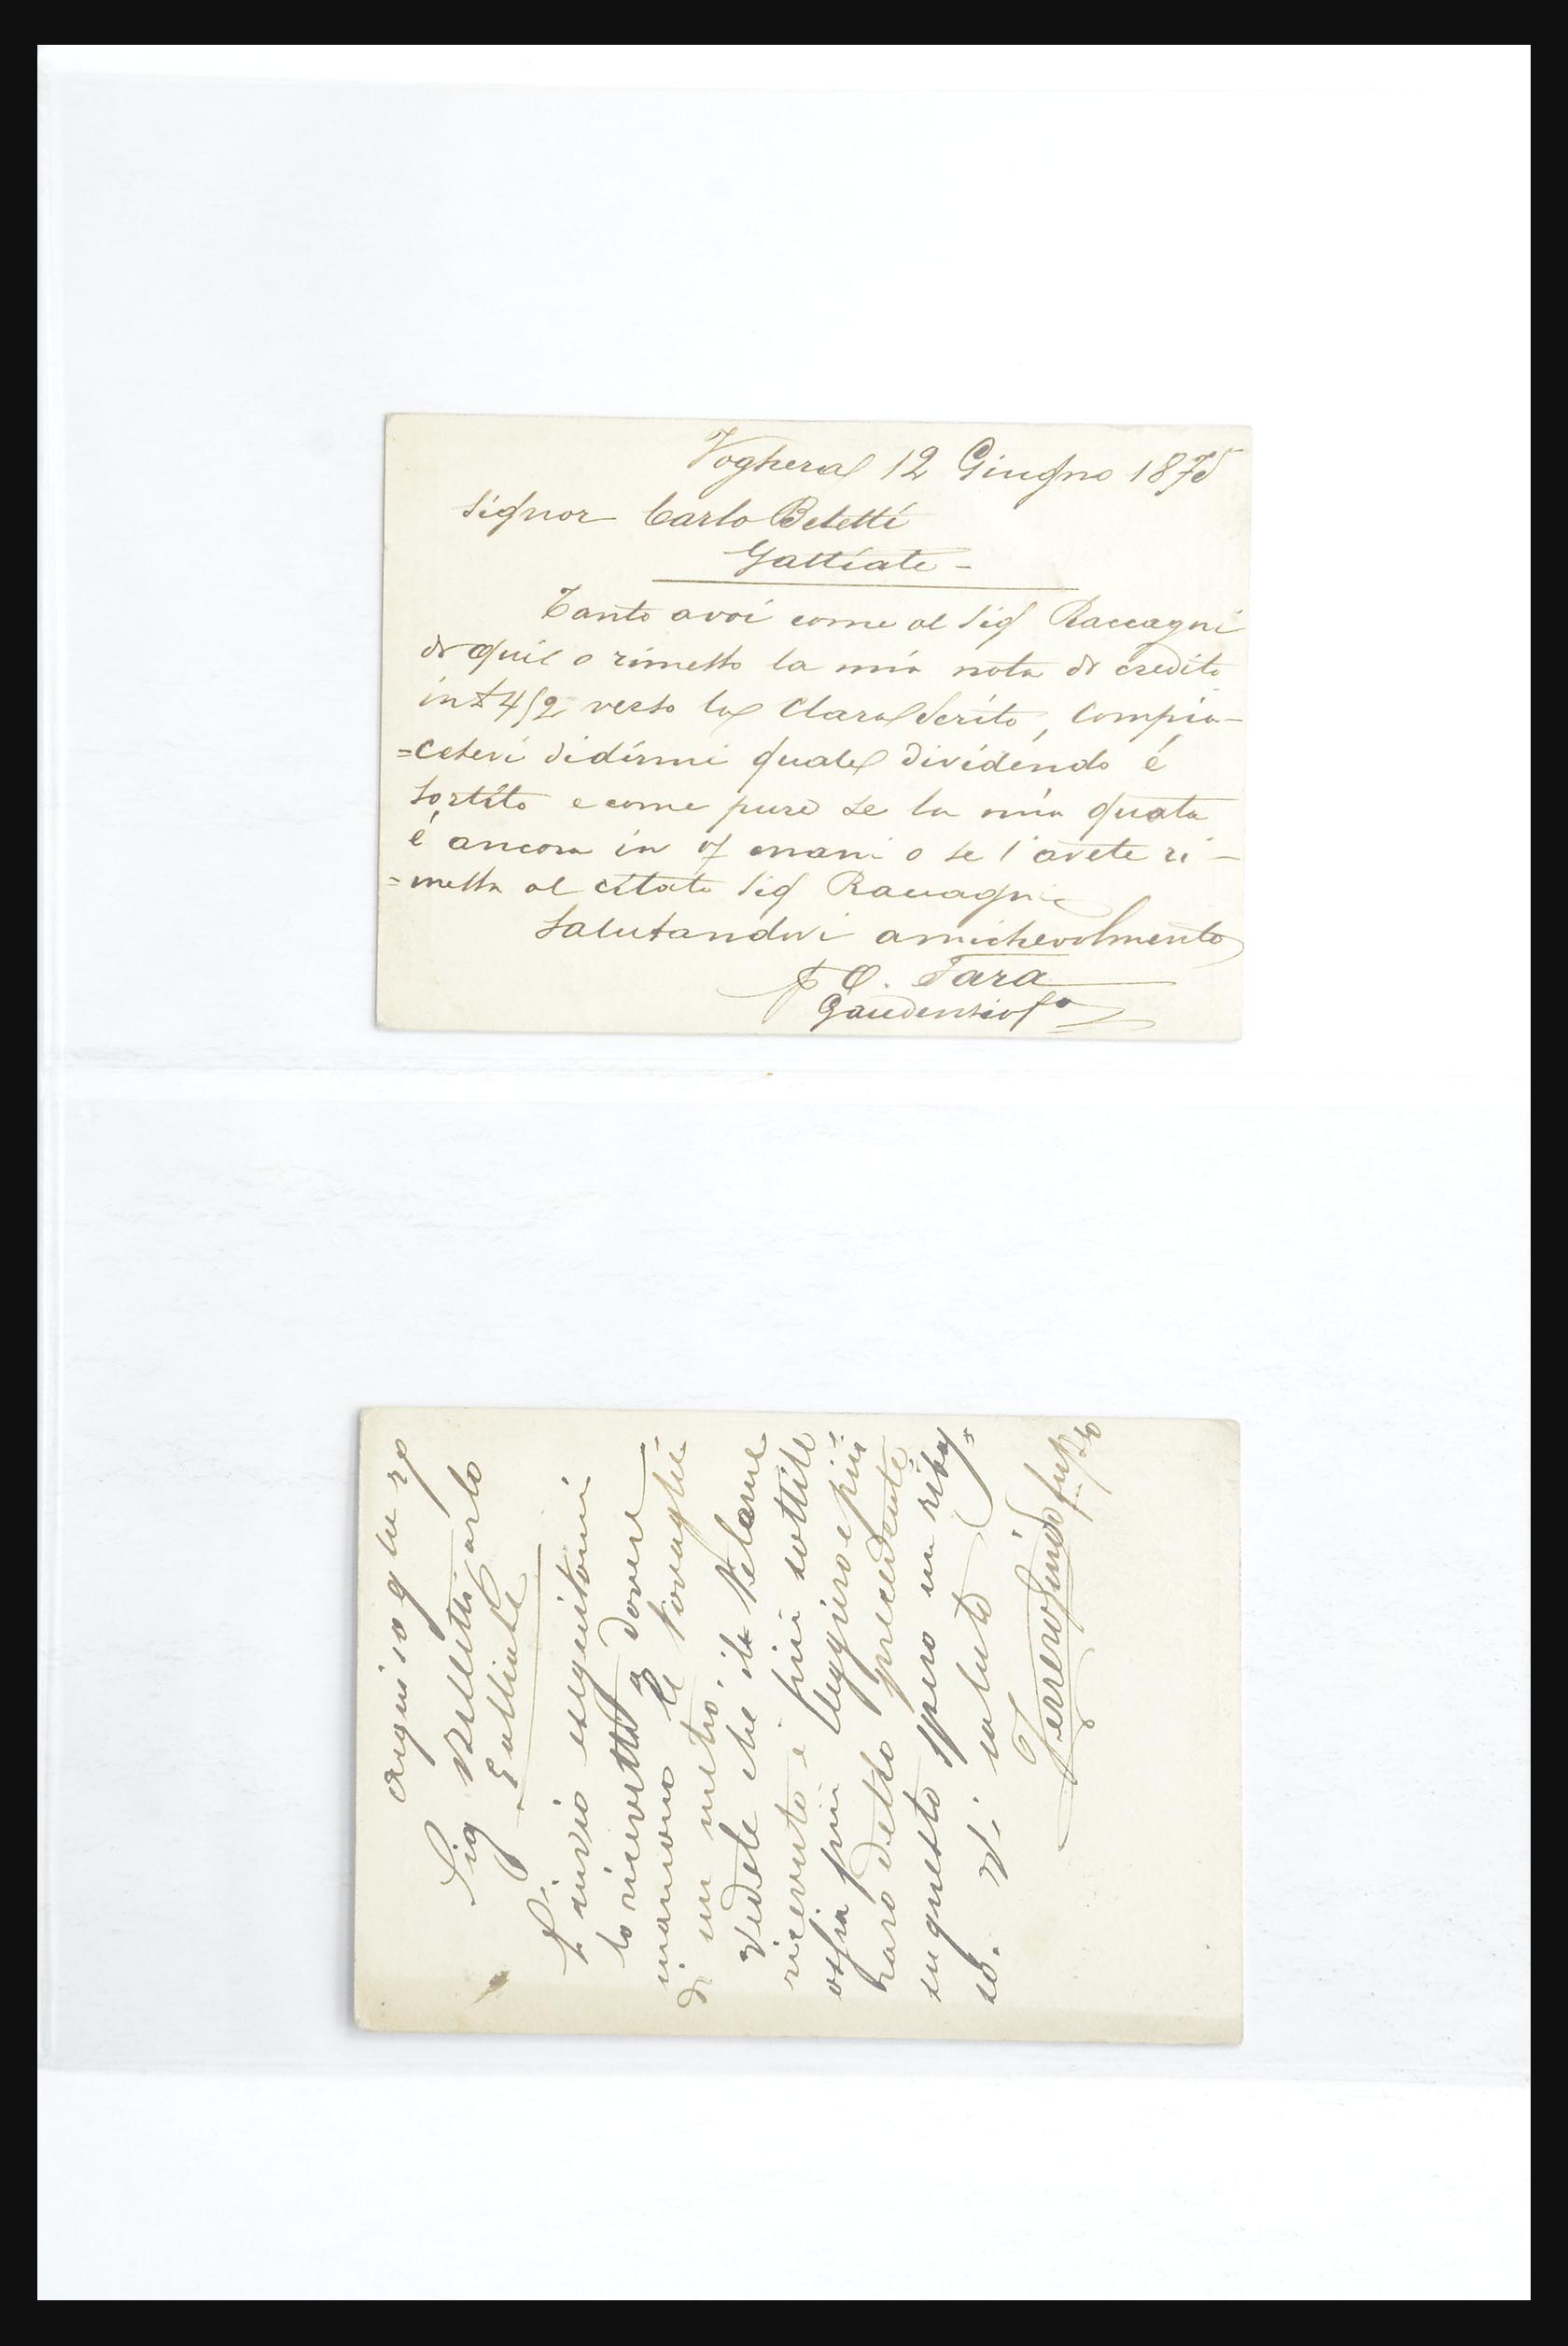 Voghera 12 Giugno 1875
Signor Carlo Beletti
Galliate -
Tanto a voi come al Sig Raccagni
di qui o rimesso la mia nota di credito
in £ 452 verso la Clara Serito, compia-
=cetevi di dirmi quale dividendo é
sortito e come pure se la mia quota
é ancora in mani o se l'avete ri-
=messa al citato Sig Raccagni
Salutandovi amichevolmente
O. Tara
Gaudenzio
luglio
Sig Belletti Carlo
Galliate
invio
la ricevetta a dovere
mancano le tovaglie
di un metro.
Vedete che il telame
ricevuto é più sottile
ossia più leggiero e più
raro dello precedente
su questo spero un riba=
so. Vi saluto
Ferrero